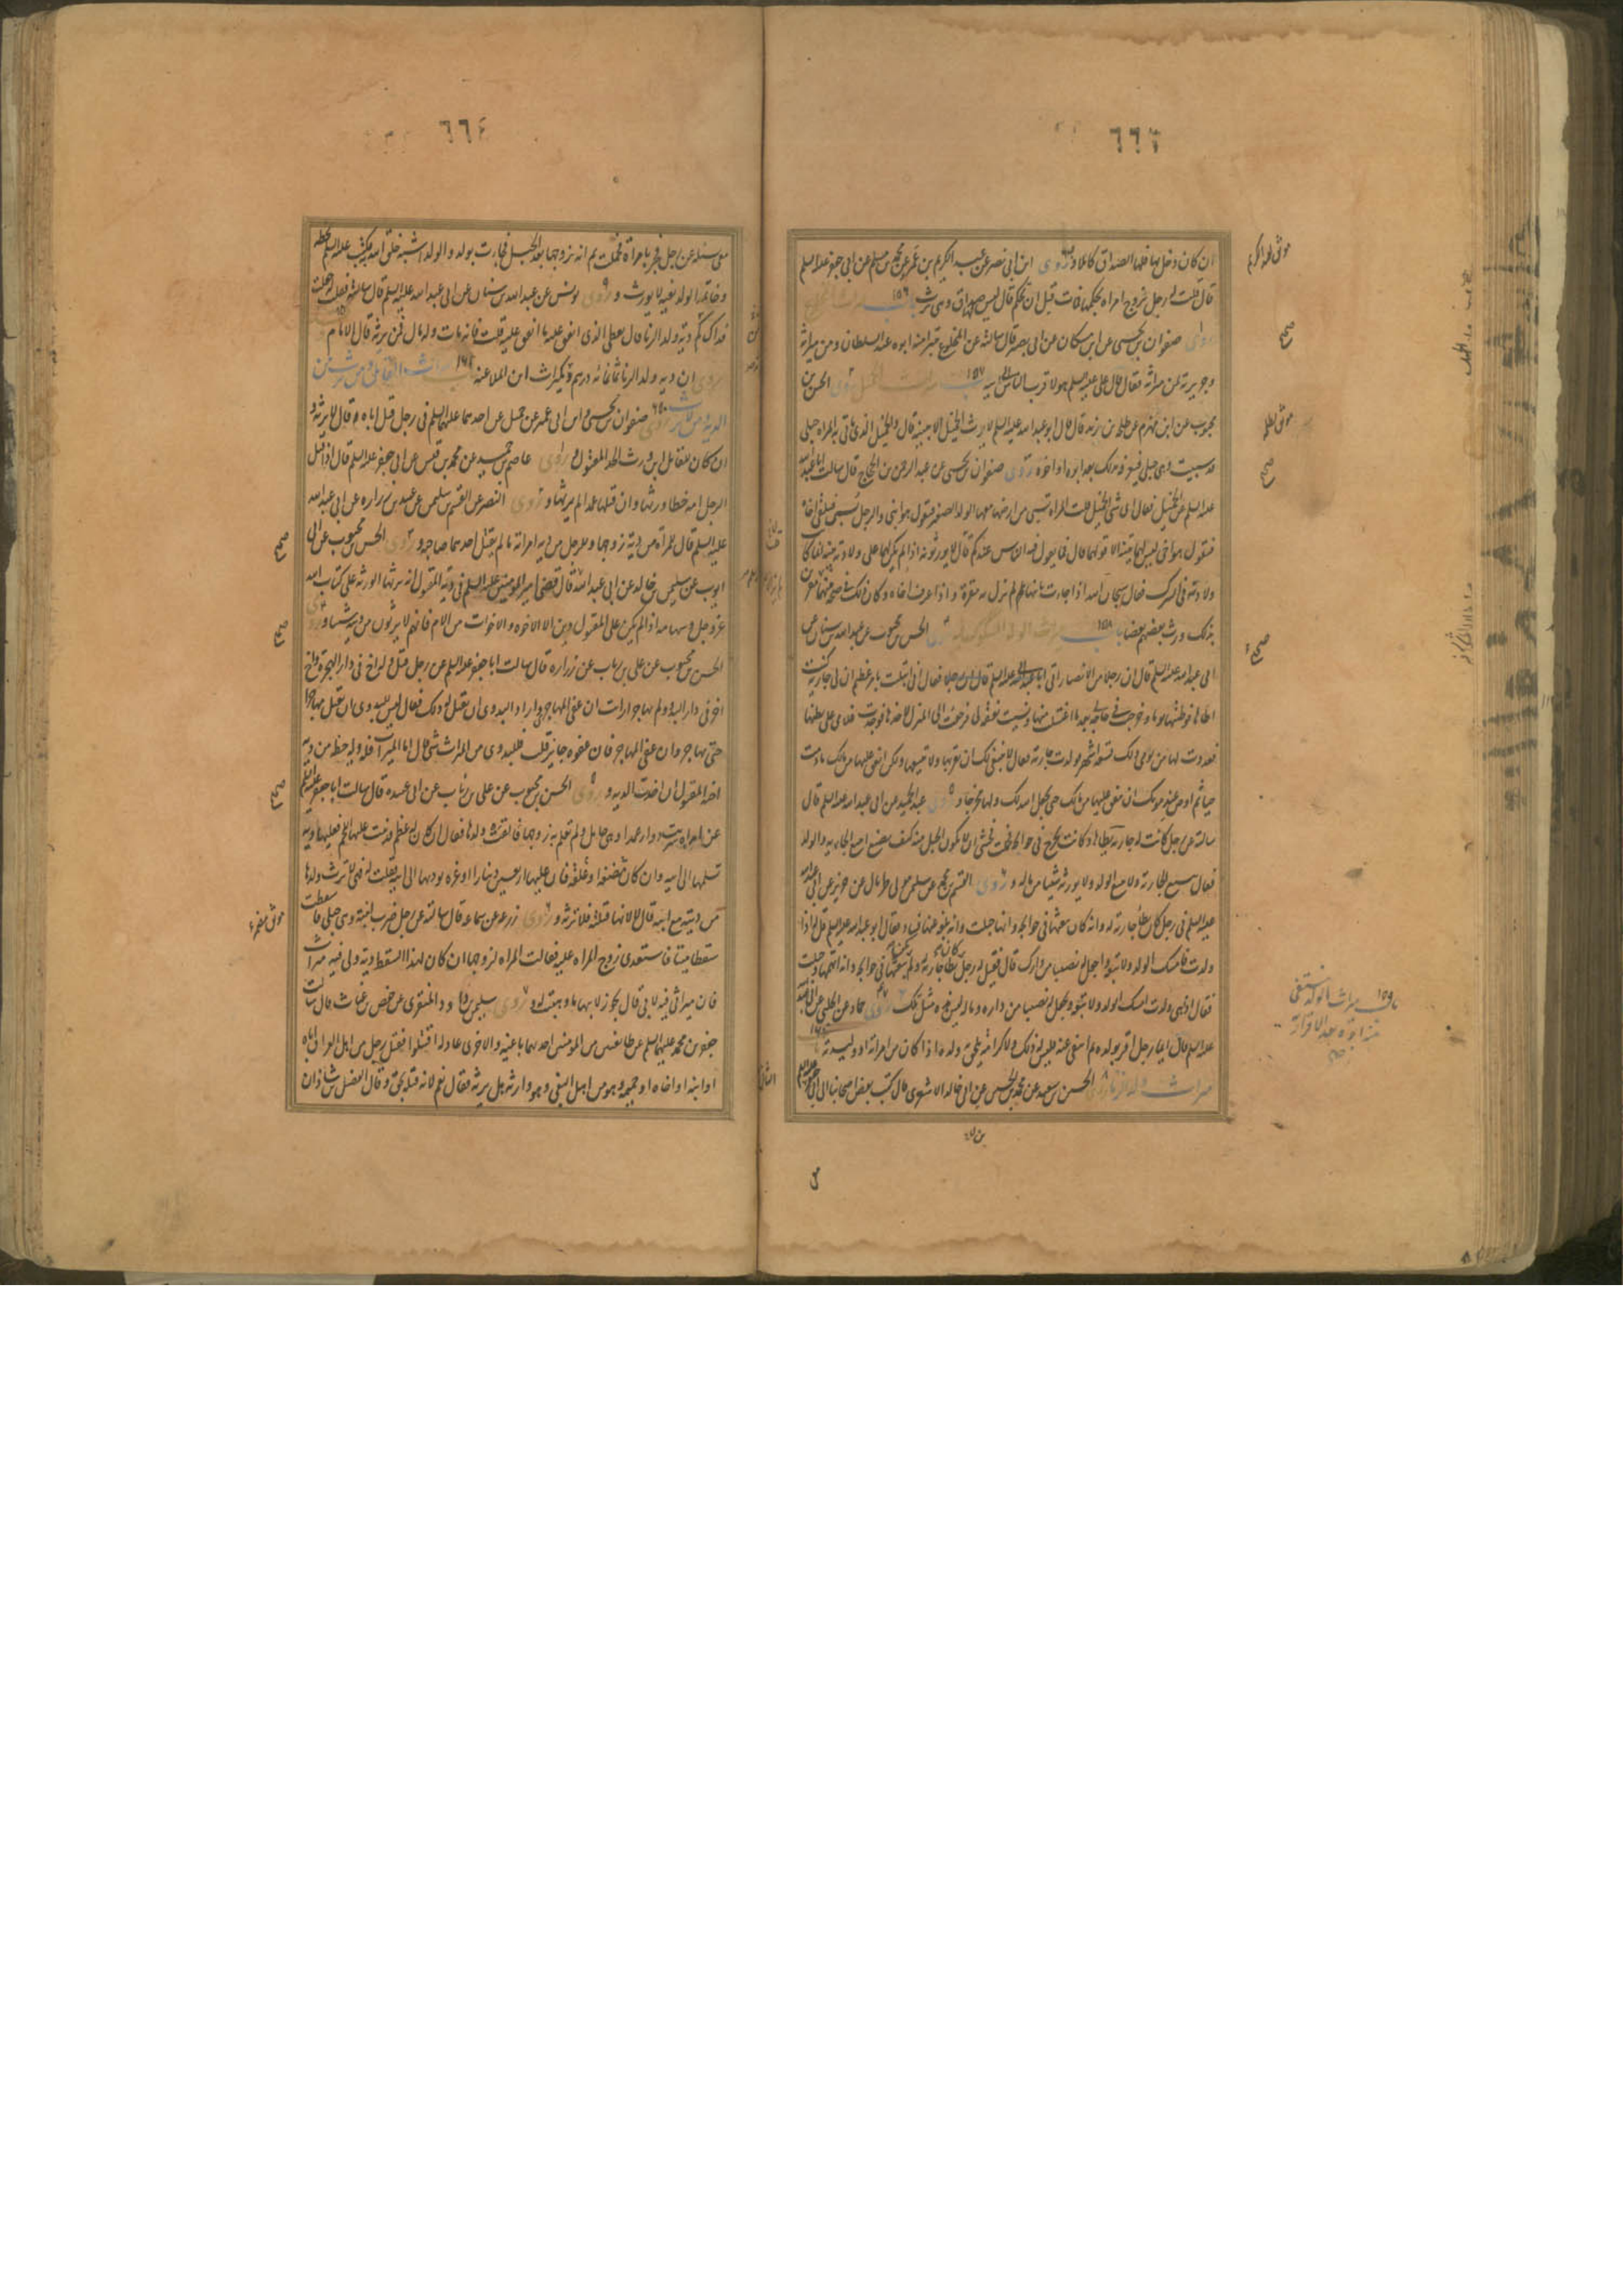 ٦٦٣
ان كان دخل بها فلها الصداق كاملا و روى ابن ابى نصر عن عبد الكريم بن عمرو عن محمد بن مسلم عن ابى جعفر عليه السلم
قال قلت له رجل تزوج امراة بحكمها فمات قبل ان تحكم قال ليس لها صداق وهى ترث باب ١٥٦
روى صفوان بن يحيى عن ابن مسكان عن ابى بصير قال سالته عن المخلوع تبرا منه ابوه عند السلطان ومن ميراثه
وجريرته لمن ميراثه فقال قال على عليه السلم هو لاقرب الناس اليه باب ١٥٧ ميراث الحميل روى الحسن بن
محبوب عن ابن مهزم عن طلحة بن زيد قال قال ابو عبد الله عليه السلم لا يورث الحميل الا ببينة قال والحميل الذى تاتى به المراة حبلى
قد سبيت وهى حبلى فيعرفه بذلك بعد ابوه او اخوه روى صفوان بن يحيى عن عبد الرحمن بن الحجاج قال سالت ابا عبد الله
عليه السلم عن الحميل فقال اى شى الحميل قلت المراة تسبى من ارضها معها الولد الصغير فتقول هو ابنى والرجل يسبى فيلقى اخاه
فيقول هو اخى ليس لهما بينة الا قولهما قال فما يقول فيه الناس عندكم قال لا يورثونه اذا لم يكن لهما على ولادته بينة انما كانت
ولادته فى الشرك فقال سبحان الله اذا جاءت بابنها لم تزل به مقرة واذا عرف اخاه وكان ذلك فى صحة منهما
بذلك ورث بعضهم بعضا باب ١٥٨ ميراث الولد المشكوك فيه روى الحسن بن محبوب عن عبد الله بن سنان عن
ابى عبد الله عليه السلم قال ان رجلا من الانصار اتى ابا جعفر عليه السلم فقال انى ابتليت بامر عظيم ان لى جارية كنت
اطاها فوطئتها يوما وخرجت فى حاجة لى بعد ما اغتسلت منها ونسيت نفقة لى فرجعت الى المنزل لاخذها فوجدت غلامى على بطنها
فعددت لها من يومى ذلك تسعة اشهر فولدت جارية فقال لا ينبغى لك ان تقربها ولا تبيعها ولكن انفق عليها من مالك ما دمت
حيا ثم اوص عند موتك ان ينفق عليها من مالك حتى يجعل الله لك ولها مخرجا و روى عبد الحميد عن ابى عبد الله عليه السلم قال
سالته عن رجل كانت له جارية يطاها وكانت تخرج فى حوائجه فحبلت فخشى ان لا يكون الحبل منه كيف يصنع ايبيع الجارية والولد
فقال يبيع الجارية ولا يبيع الولد ولا يورثه شيئا من ماله و روى القسم بن محمد عن سليم مولى طربال عن حريز عن ابى عبد الله
عليه السلم فى رجل كان يطا جارية له وانه كان يبعثها فى حوائجه وانها حبلت وانه بلغه عنها فساد فقال ابو عبد الله عليه السلم قل له اذا
ولدت فامسك الولد ولا تبعه واجعل له نصيبا من دارك قال فقيل له رجل كان يطا جارية له ولم يكن يبعثها فى حوائجه وانه اتهمها وحبلت
فقال اذا هى ولدت امسك الولد ولا يبيعه ويجعل له نصيبا من داره وماله ليس هذه مثل تلك روى حماد عن الحلبى عن ابى عبد الله
عليه السلم قال ايما رجل اقر بولده ثم انتفى عنه فليس له ذلك ولا كرامة يلحق به ولده اذا كان من امراته او وليدته باب ١٦٠
ميراث ولد الزنا روى الحسن بن سعيد عن محمد بن الحسن بن ابى خالد الاشعرى قال كتب بعض اصحابنا الى ابى جعفر
موثق لعبد الكريم
صحيح
صحيح
صحيح
باب ١٥٩ ميراث الولد ينتفى
منه ابوه بعد الاقرار به
٦٦٤
معى يسئله عن رجل فجر بامراة فحملت ثم انه تزوجها بعد الحبل فجاءت بولد والولد اشبه خلق الله به فكتب عليه السلم بخطه
وخاتمه الولد لغية لا يورث و روى يونس عن عبد الله بن سنان عن ابى عبد الله عليه السلم قال سالته فقلت له جعلت
فداك كم دية ولد الزنا قال يعطى الذى انفق عليه ما انفق عليه قلت فانه مات وله مال فمن يرثه قال الامام
روى ان دية ولد الزنا ثمانمائة درهم و ميراثه كميراث ابن الملاعنة باب ١٦١ ميراث القاتل ومن يرث من
الدية ومن لا يرث روى صفوان بن يحيى وابن ابى عمير عن جميل عن احدهما عليهما السلم فى رجل قتل اباه قال لا يرثه و
ان كان للقاتل ابن ورث الجد المقتول و روى عاصم بن حميد عن محمد بن قيس عن ابى جعفر عليه السلم قال اذا قتل
الرجل امه خطا ورثها وان قتلها عمدا لم يرثها و روى النضر عن القسم بن سليمن عن عبيد بن زرارة عن ابى عبد الله
عليه السلم قال للمراة من دية زوجها وللرجل من دية امراته ما لم يقتل احدهما صاحبه و روى الحسن بن محبوب عن ابى
ايوب عن سليمن بن خالد عن ابى عبد الله قال قضى امير المؤمنين عليه السلم فى دية المقتول انه يرثها الورثة على كتاب الله
عز وجل وسهامه اذا لم يكن على المقتول دين الا الاخوة والاخوات من الام فانهم لا يرثون من ديته شيئا و روى
الحسن بن محبوب عن على بن رياب عن زرارة قال سالت ابا جعفر عليه السلم عن رجل قتل وله اخ فى دار الهجرة واخ
اخر فى دار البدو ولم يهاجر ارايت ان عفى المهاجرى واراد البدوى ان يقتل له ذلك فقال ليس للبدوى ان يقتل مهاجرا
حتى يهاجر وان عفى المهاجر فان عفوه جايز قلت فللبدوى من الميراث شى قال اما الميراث فله وله حظه من دية
اخيه المقتول ان اخذت الدية و روى الحسن بن محبوب عن على بن رياب عن ابى عبيدة قال سالت ابا جعفر عليه السلم
عن امراة شربت دواء عمدا وهى حامل ولم تعلم بذلك زوجها فالقت ولدها فقال ان كان له عظم قد نبت عليه اللحم فعليها دية
تسلمها الى ابيه وان كان مضغة او علقة فان عليها اربعين دينارا او غرة تؤديها الى ابيه قلت له فهى لا ترث ولدها
من ديته مع ابيه قال لا لانها قتلته فلا ترثه و روى زرعة عن سماعة قال سالته عن رجل ضرب ابنته وهى حبلى فاسقطت
سقطا ميتا فاستعدى زوج المراة عليه فقالت المراة لزوجها ان كان لهذا السقط دية ولى فيه ميراث
فان ميراثى فيه لابى قال يجوز لابيها ما وهبت له و روى سليمن بن داود المنقرى عن حفص بن غياث قال سالت
جعفر بن محمد عليهما السلم عن طائفتين من المؤمنين احديهما باغية والاخرى عادلة اقتتلوا فقتل رجل من اهل العراق اباه
او ابنه او اخاه او حميمه وهو من اهل البغى وهو وارثه هل يرثه فقال نعم لانه قتله بحق وقال الفضل بن شاذان
صحيح
صحيح
صحيح